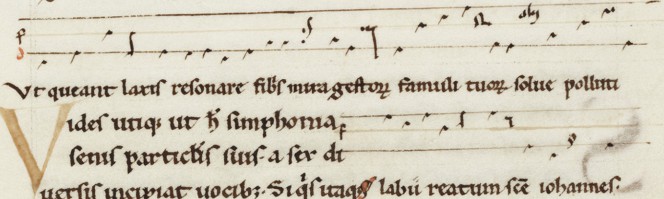 Vt queant laxis resonare fibris mira gestoꝝ famuli tuoꝝ solue polluti
Vides utiqꝫ ut h̄ simphonia
senis particulis suis · a sex di
uersis incipiat uocibꝫ · Si q̇s itaqꝫ labii reatum sc̄e iohannes ·